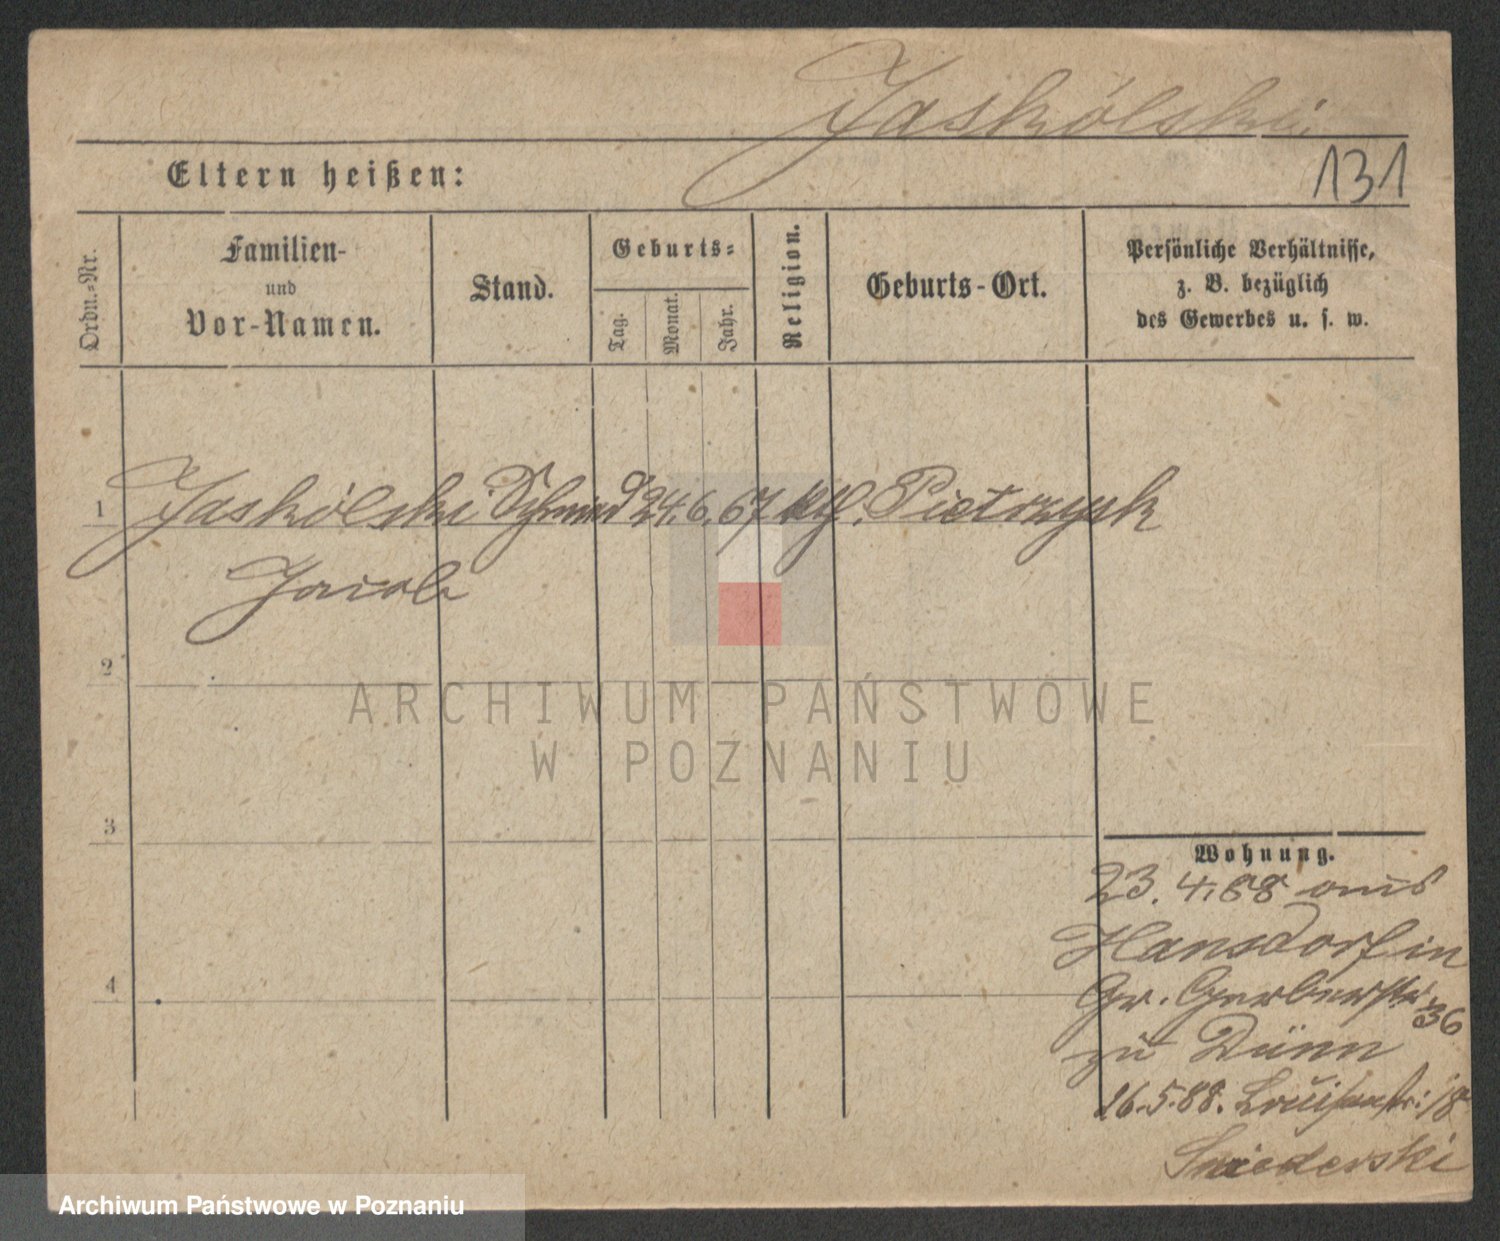 Jaskólski.
Eltern heißen:
131
Ordn.-Nr.
Familien-
und
Vor-Namen.
Stand.
Geburts-
Tag.
Monat.
Jahr.
Religion.
Geburts-Ort.
Persönliche Verhältnisse,
z. B. bezüglich
des Gewerbes u. s. w.
1 Jaskólski Schmied 24. 6. 67 ktl. Pietrzyk
Jacob
2
ARCHIWUM PAŃSTWOWE
W POZNANIU
3
4
Wohnung.
23. 4. 88 aus
Hansdorf in
Gr. Gerberstr. 36
zu Dünn
16. 5. 88. Louisenstr: 18
Archiwum Państwowe w Poznaniu